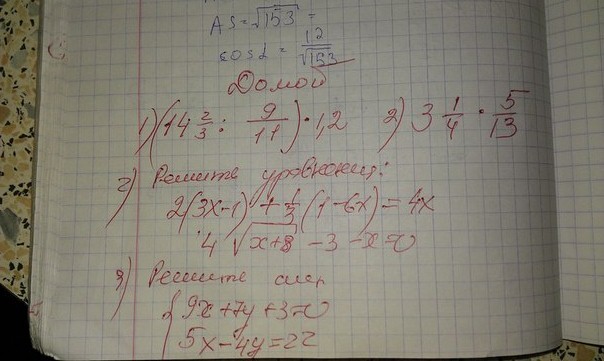 AS = √153 =
cos L = 12/√153
Домой
1) (14 2/3 : 9/11) · 1,2   2) 3 1/4 · 5/13
2) Решите уравнения:
2(3x-1) + 1/3 (1-6x) = 4x
4 √x+8 - 3 - x = 0
3) Решите
{ 9x + 7y + 3 = 0
5x - 4y = 22